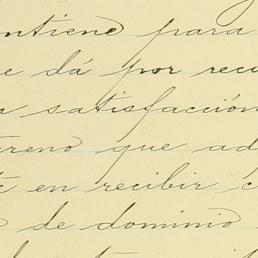 ontiene para
e dá por reci
a satisfacción
rreno que ad
te en recibir c
de dominio